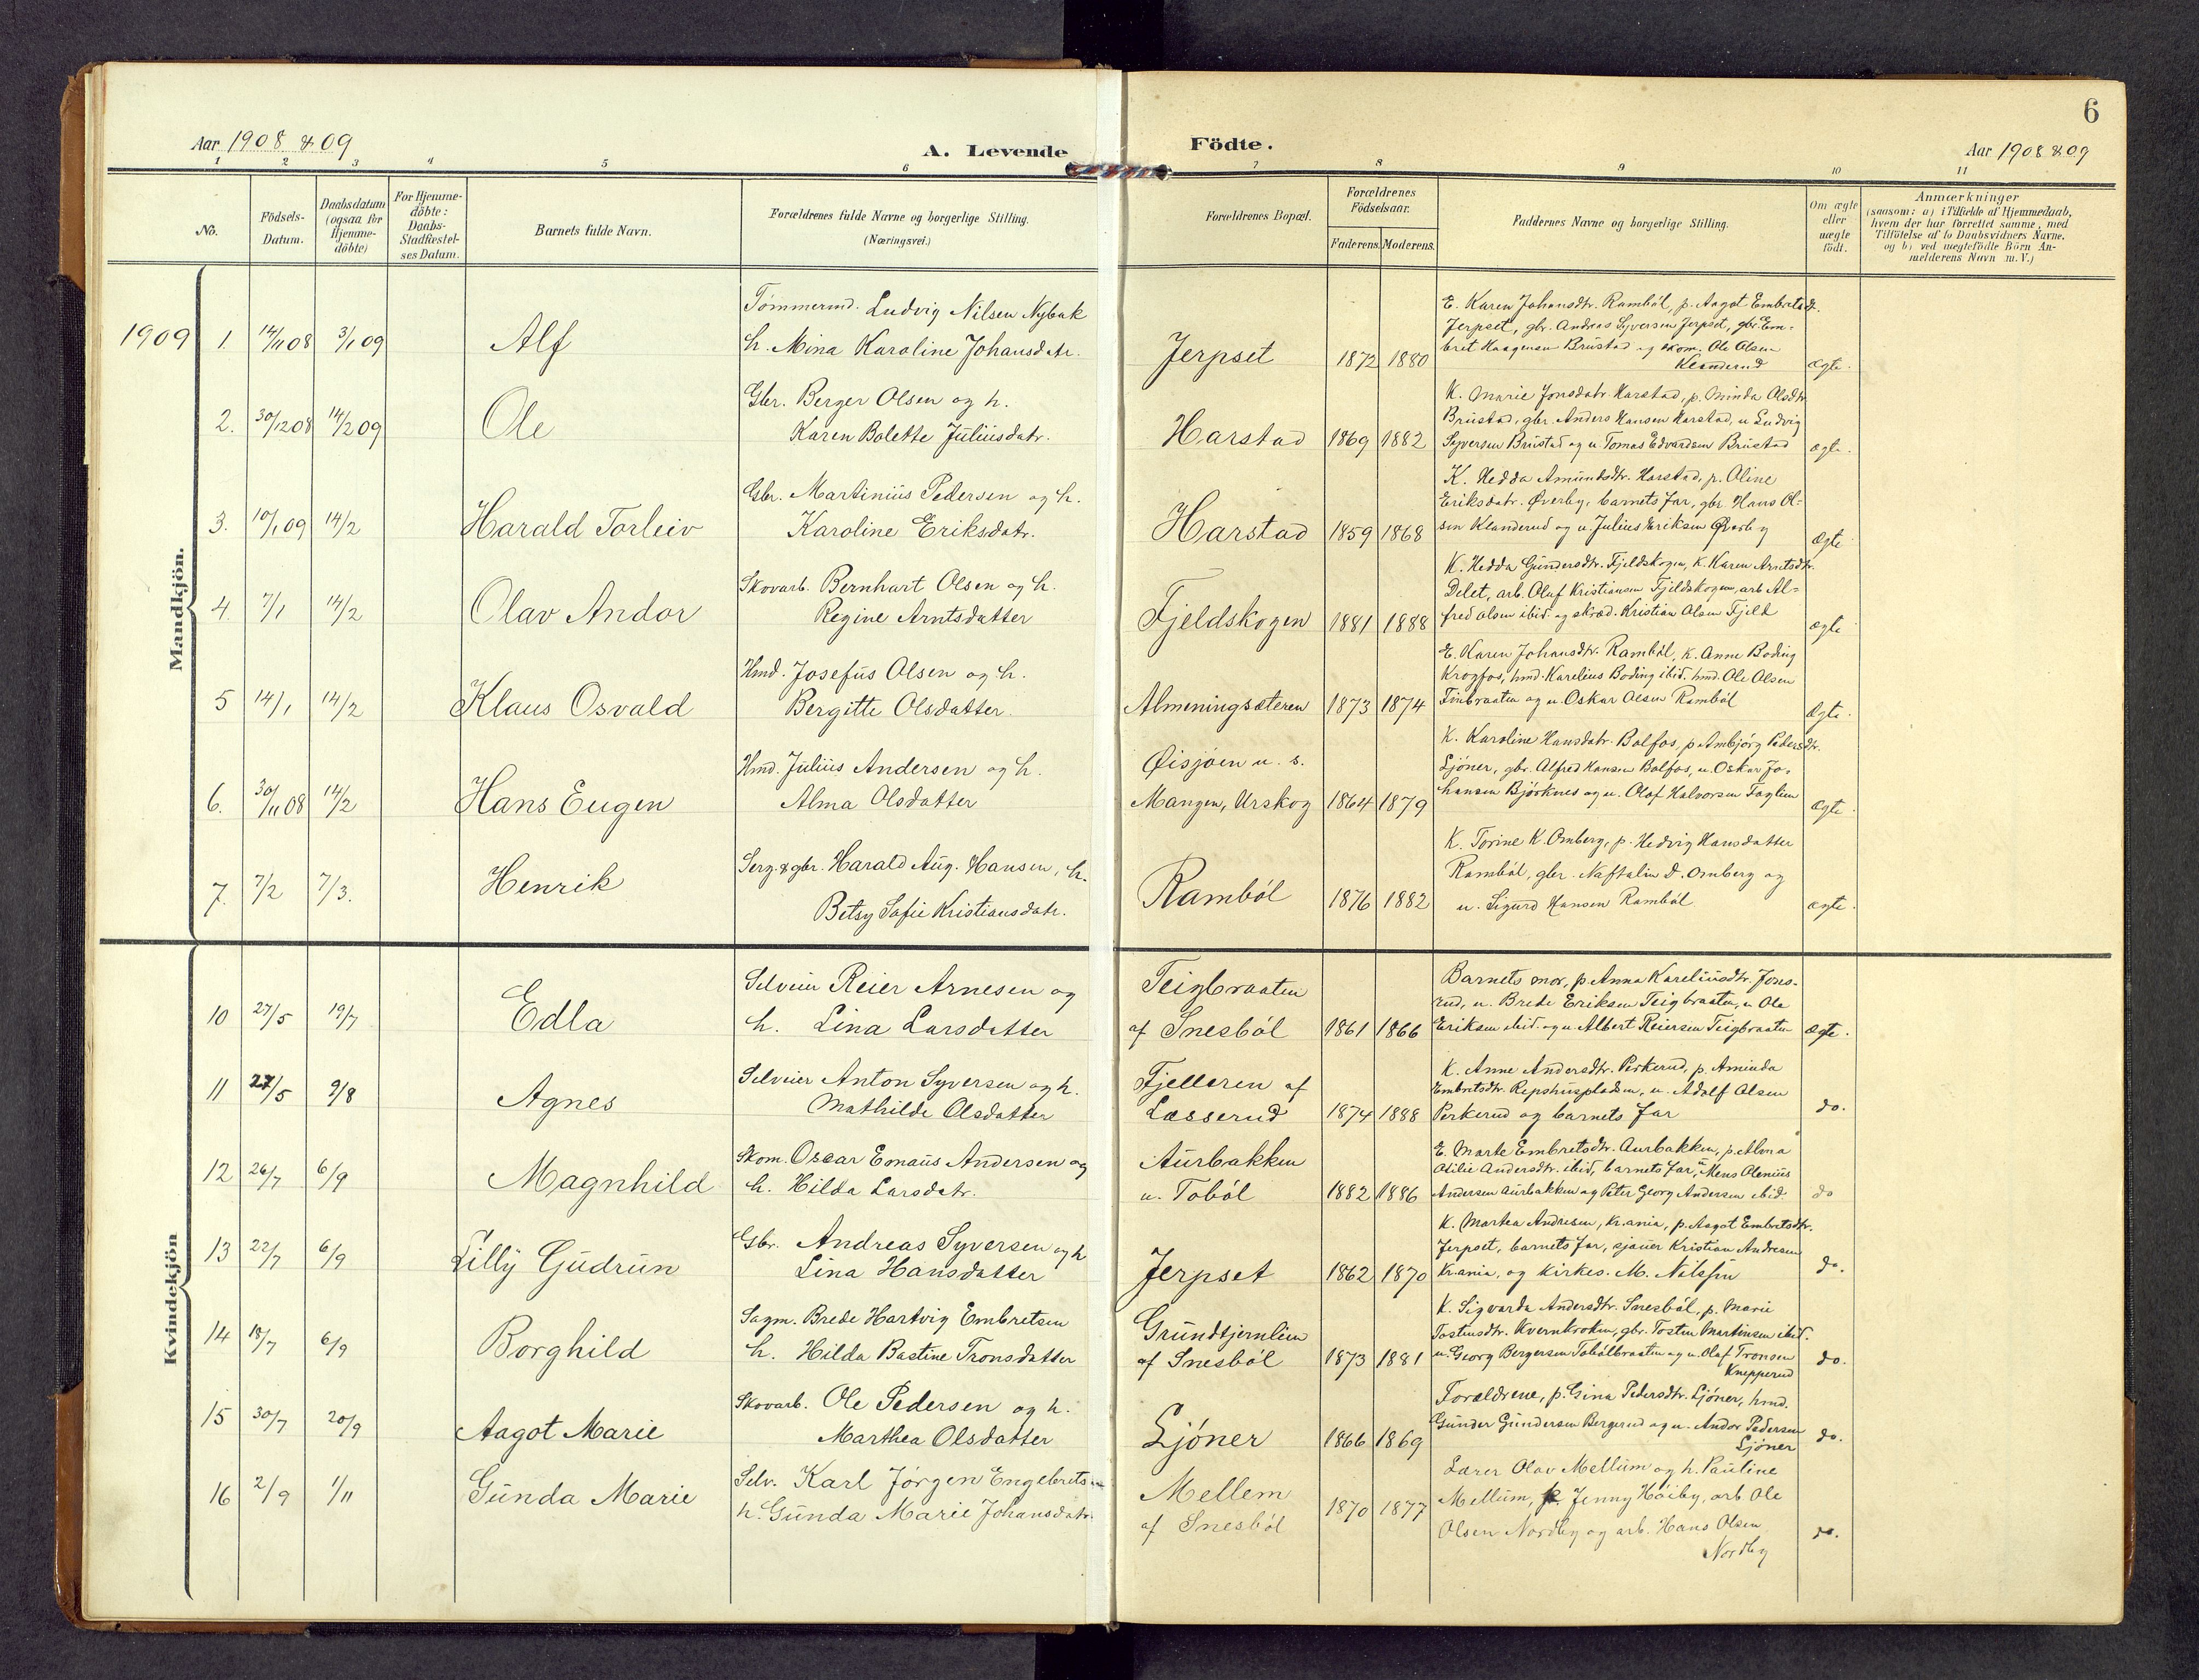 6
Aar 1908 & 09
A. Levende
Födte.
Aar 1908 & 09
1 2 3 4 5 6 7 8 9 10 11
No.
Födsels-
Datum.
Daabsdatum
(ogsaa for
Hjemme-
döbte)
For Hjemme-
döbte:
Daabs-
Stadfæstel-
ses Datum.
Barnets fulde Navn.
Forældrenes fulde Navne og borgerlige Stilling.
(Næringsvei.)
Forældrenes Bopæl.
Forældrenes
Födselsaar.
Faderens. Moderens.
Faddernes Navne og borgerlige Stilling.
Om ægte
eller
uægte
födt.
Anmærkninger
(saasom: a) i Tilfælde af Hjemmedaab,
hvem der har forrettet samme, med
Tilföielse af to Daabsvidners Navne,
og b) ved uægtefödte Börn An-
melderens Navn m. V.)
Mandkjön.
1909 1. 14/11 08 3/1 09 Alf
Tömmermd. Ludvig Nilsen Nybak
h. Mina Karoline Johansdatr.
Jerpset 1872 1880
E. Karen Johansdtr. Ramböl, p. Aagot Embretsdt.
Jerpset, gbr. Andreas Syversen Jerpset, gbr. Em-
bret Haagensen Brustad og skom. Ole Olsen
Klanderud
ægte.
2. 30/12 08 14/2 09 Ole
Gbr. Berger Olsen og h.
Karen Bolette Juliusdatr.
Harstad 1869 1882
K. Marie Jonsdatr. Harstad, p. Minda Olsdtr.
Brustad, gbr. Anders Hansen Harstad, u. Ludvig
Syversen Brustad og u. Tomas Edvardsen Brustad
ægte.
3. 10/1 09 14/2 Harald Torleiv
Gbr. Martinius Pedersen og h.
Karoline Eriksdatr.
Harstad 1859 1868
K. Hedda Amundsdtr. Harstad, p. Oline
Eriksdatr. Øverby, barnets far, gbr. Hans Ol-
sen Klanderud og u. Julius Eriksen Øverby
ægte
4. 7/1 14/2 Olav Andor
Skovarb. Bernhart Olsen og h.
Regine Arntsdatter
Fjeldskogen 1881 1888
K. Hedda Gundersdtr. Fjeldskogen, K. Karen Arntsdtr.
Delet, arb. Olaf Kristiansen Fjeldskogen, arb. Al-
fred Olsen ibid. og skræd. Kristian Olsen Fjeld
ægte
5 14/1 14/2 Klaus Osvald
Hmd. Josefus Olsen og h.
Bergitte Olsdatter.
Almeningsæteren 1873 1874
E. Karen Johansdtr. Ramböl, K. Anne Boding
Krogfos, hmd. Karelius Boding ibid. hmd. Ole Olsen
Finbraaten og u. Oskar Olsen Ramböl
Ægte.
6. 30/11 08 14/2 Hans Eugen
Hmd. Julius Andersen og h.
Alma Olsdatter
Øisjöen u. s.
Mangen, Urskog 1864 1879
K. Karoline Hansdatr. Bolfos, p. Ambjörg Pedersdtr.
Ljöner, gbr. Alfred Hansen Bolfos, u. Oskar Jo-
hansen Björknes og u. Olaf Halvorsen Faglien
Ægte.
7. 7/2 7/3. Henrik
Serg. & gbr. Harald Aug. Hansen, h.
Betsy Sofie Kristiansdatr.
Ramböl 1876 1882
K. Torine K. Omberg, p. Hedvig Hansdatter
Ramböl, gbr. Naftalin D. Omberg og
u. Sigurd Hansen Ramböl
ægte.
Kvindekjön
10 27/5 19/7 Edla
Selveier Reier Arnesen og
h. Lina Larsdatter
Teigbraaten
af Snesböl 1861 1866
Barnets mor, p. Anna Kareliusdtr. Jons-
rud, u. Brede Eriksen Teigbraaten, u. Ole
Eriksen ibid. og u. Albert Reiersen Teigbraaten
ægte.
11 27/5 9/8 Agnes
Selveier Anton Syversen og h.
Mathilde Olsdatter
Fjelleren af
Læsserud 1874 1888
K. Anne Andersdtr. Perkerud, p. Aminda
Embretsdtr. Repshuspladsen, u. Adolf Olsen
Perkerud og barnets far
do.
12 26/7 6/9 Magnhild
Skom. Oscar Emaus Andersen og
h. Hilda Larsdatr.
Aurbakken
u. Toböl 1882 1886
E. Marte Embretsdtr. Aurbakken, p. Alma
Otilie Andersdtr. ibid, barnets far, u. Mens Olenius
Andersen Aurbakken og Peter Georg Andersen ibid.
do
13 22/7 6/9 Lilly Gudrun
Gbr. Andreas Syversen og h
Lina Hansdatter
Jerpset 1862 1870
K. Martea Andresen, Kr.ania, p. Aagot Embretsdtr.
Jerpset, barnets far, sjauer Kristian Andresen
Kr.ania, og kirkes. M. Nilssen
do.
14 18/7 6/9 Borghild
Sagm. Brede Hartvig Embretsen
h. Hilda Bastine Tronsdatter
Grundtjernlien
af Snesböl 1873 1881
K. Sigvarda Andersdtr. Snesböl, p. Marie
Tostensdtr. Kvernkroken, gbr. Tosten Martinsen ibid.
u. Georg Bergersen Tobölbraaten og u. Olaf Tronsen
Knepperud
do.
15 30/7 20/9 Aagot Marie
Skovarb. Ole Pedersen og h.
Marthea Olsdatter
Ljöner 1866 1869
Forældrene, p. Gina Pedersdtr. Ljöner, hmd.
Gunder Gundersen Bergerud og u. Andor Pedersen
Ljöner
do.
16 2/9 1/11 Gunda Marie
Selv. Karl Jörgen Engebrets
h. Gunda Marie Johansdatr.
Mellem
af Snesböl 1870 1877
Lærer Olav Mellum og h. Pauline
Mellum, p. Jenny Höiby, arb. Ole
Olsen Nordby og arb. Hans Olsen
Nordby
do.